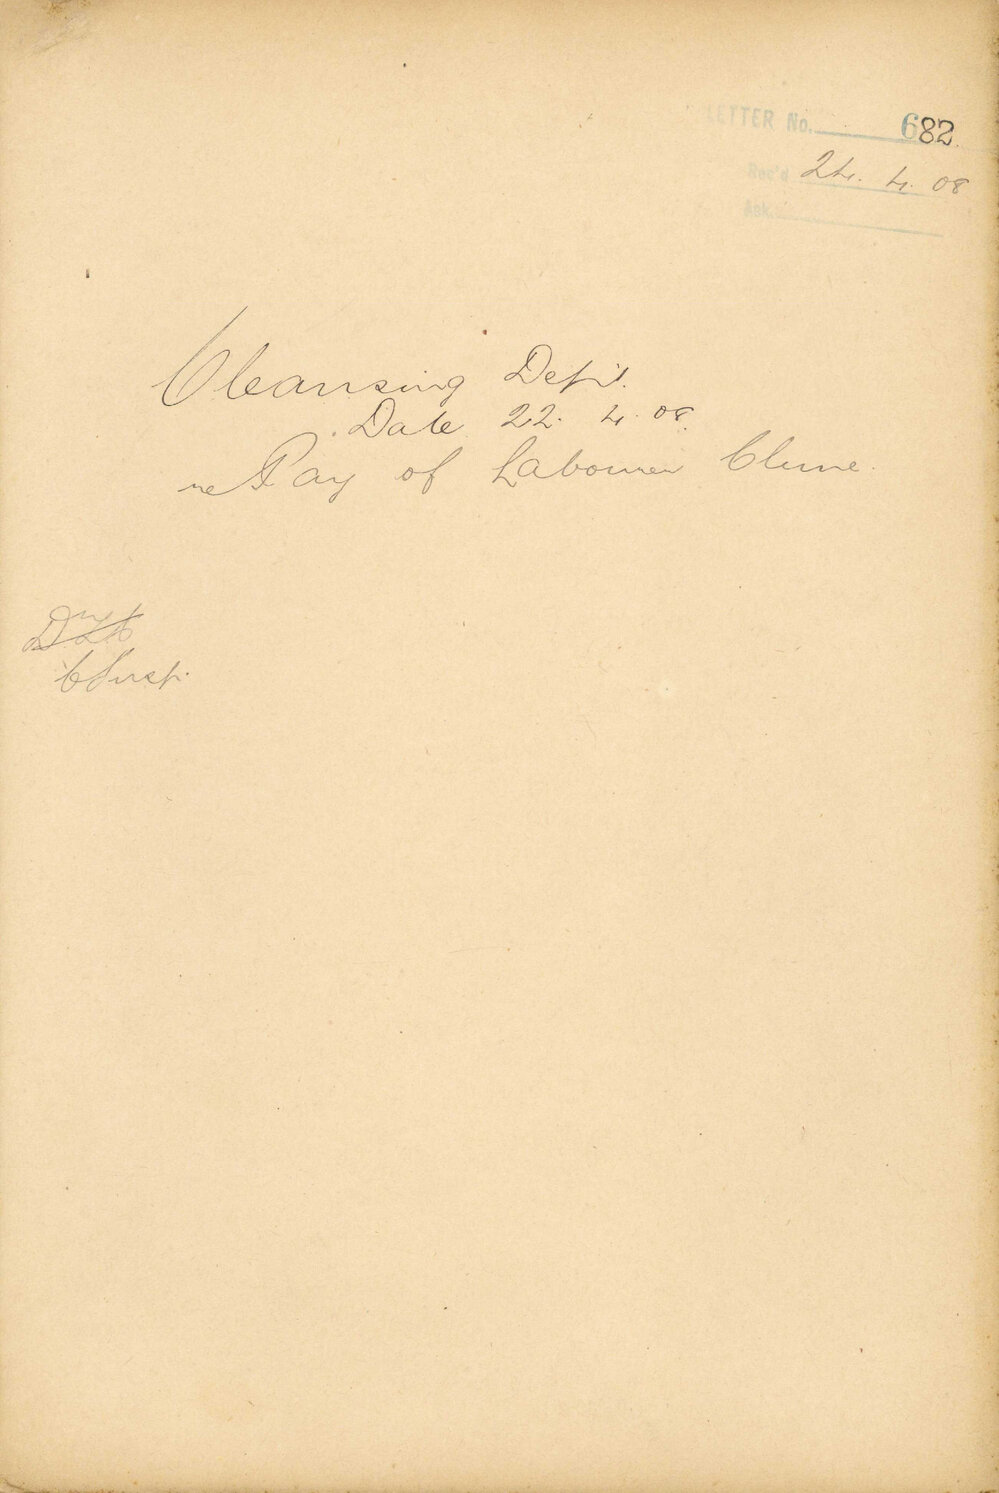 LETTER No. 682
Rec'd 24. 4. 08
Ack.
Cleansing Dept.
Date 22. 4. 08.
re Pay of Labourer Clune.